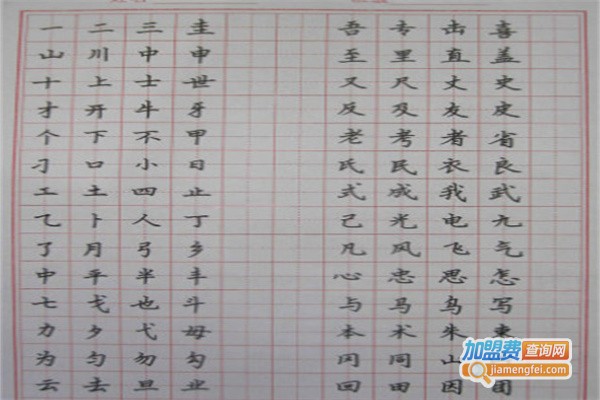 一 二 三 圭 吾 专 击 喜
山 川 中 申 至 里 直 盖
十 上 士 世 又 尺 丈 史
才 开 牛 牙 反 及 友 皮
个 下 不 甲 老 考 者 省
刁 口 小 日 氏 民 衣 良
工 土 四 止 式 成 我 武
乙 卜 人 丁 己 光 电 九
了 月 弓 乡 凡 风 飞 气
中 平 半 丰 心 忠 思 怎
七 戈 也 斗 与 马 乌 写
力 夕 弋 母 本 术 朱 東
为 勺 勿 勾 冈 同 山
云 去 旦 业 回 田 因 团
加盟费查询网
jiamengfei.com